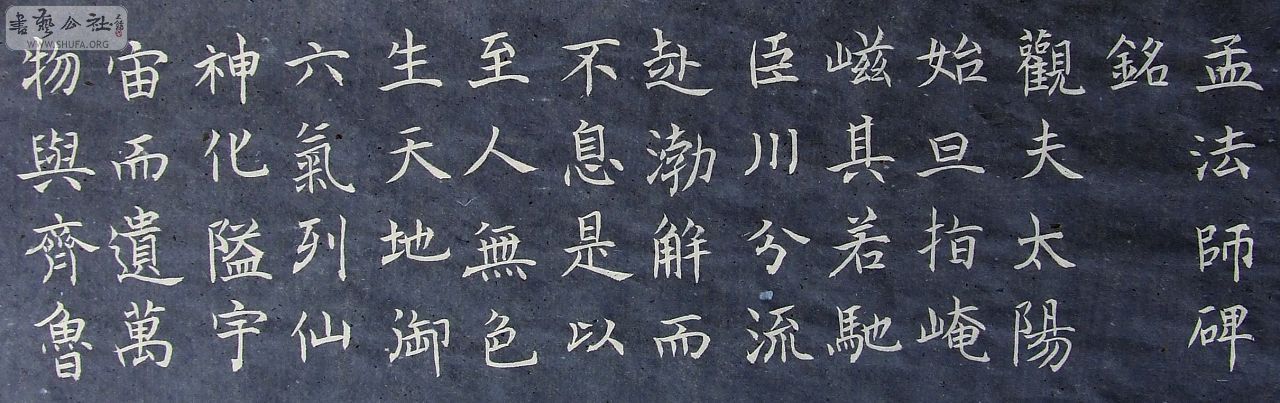 孟法師碑
銘
觀夫太陽
始旦指崦
嵫其若馳
臣川分流
赴渤解而
不息是以
至人無色
生天地御
六氣列仙
神化隘宇
宙而遺萬
物與齊魯
書藝公社
WWW.SHUFA.ORG